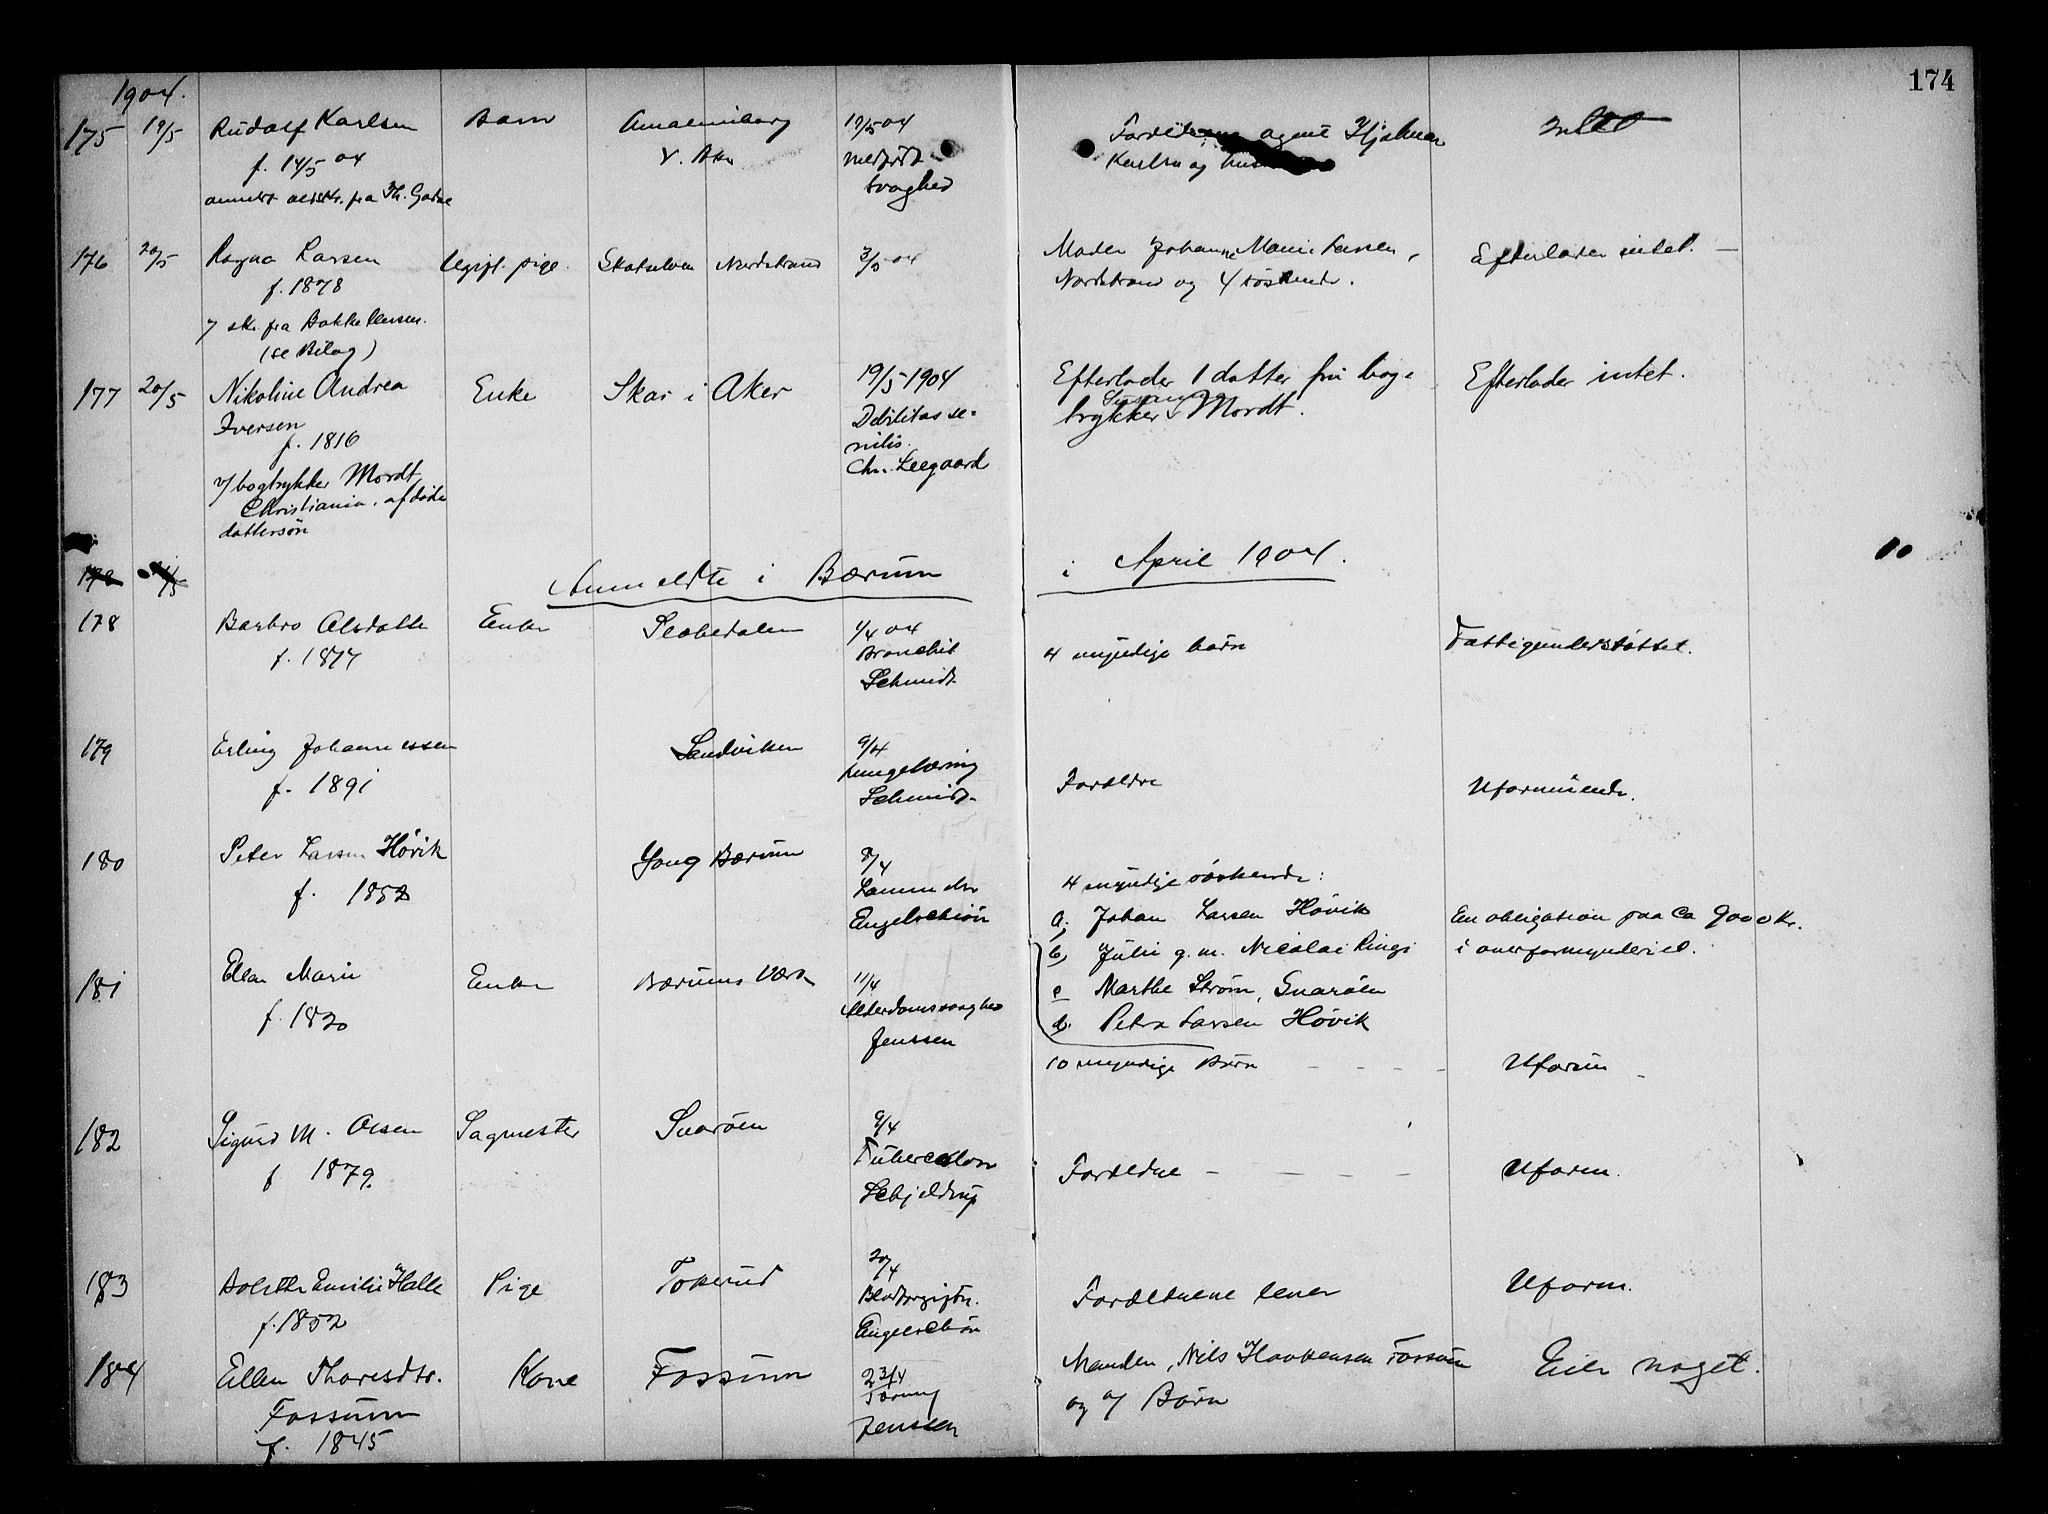 174
1904.
175 19/5 Rudolf Karlsen Barn Amalienborg 17/5 04 Forældrene agent Hjalmar Intet
f. 14/5 04 V. Aker medfødt Karlsen og
anmeldt fra Th. svaghed
176 20/5 Ragna Larsen Ugift pige. Nordstrand 3/5 04 Moder Johanne Marie Larsen, Efterlader intet. —
f. 1878 Nordstrand og 4 søskende.
7 skr. fra Bakke
(se Bilag)
177 20/5 Nikoline Andrea Enke Skar i Aker 19/5 1904 Efterlader 1 datter fru bog- Efterlader intet.
Iversen Debilitas se- trykker Mordt.
f. 1816 nilis.
v/ bogtrykker Mordt, Chr. Leegaard
Christiania, afdøde
dattersøn
178
Anmeldte i Bærum i April 1904.
178 Barbro Olsdatter Enke 1/4 04 4 myndige børn Fattigunderstøttet.
f. 1874 Bronchit
Schmidt
179 Erling Johannessen Sandviken 9/4 Forældre Uformuende.
f. 1891 Lungetæring
Schmidt.
180 Peter Larsen Høvik Bærum 8/4 4 myndige søskende:
f. 1852
Engelschiøn a, Johan Larsen Høvik En obligation paa ca 9000 Kr.
b, Julie g. m. Nicolai Ringi i overformynderiet.
181 Ellen Marie Enke Bærums Værk 11/4 c Marthe Strøm, Snarøen
f. 1820 Alderdomssvaghed d. Petra Larsen Høvik
Jenssen 10 myndige Børn - - - - Uform -
182 Sigurd M. Olsen Sagmester Snarøen 9/4
f 1879. Tuberculose Forældre - - - - Uform.
Schjeldrup
183 Emilie Halle Pige Toperud 20/4 Forældrene lever Uform.
f. 1852 Blodforgiftn.
Engelschiøn
184 Ellen Thoresdtr. Kone Fossum 23/4 Manden, Nils Haakensen Fossum Eier noget.
Fossum Tæring og 7 Børn
f. 1845 Jenssen